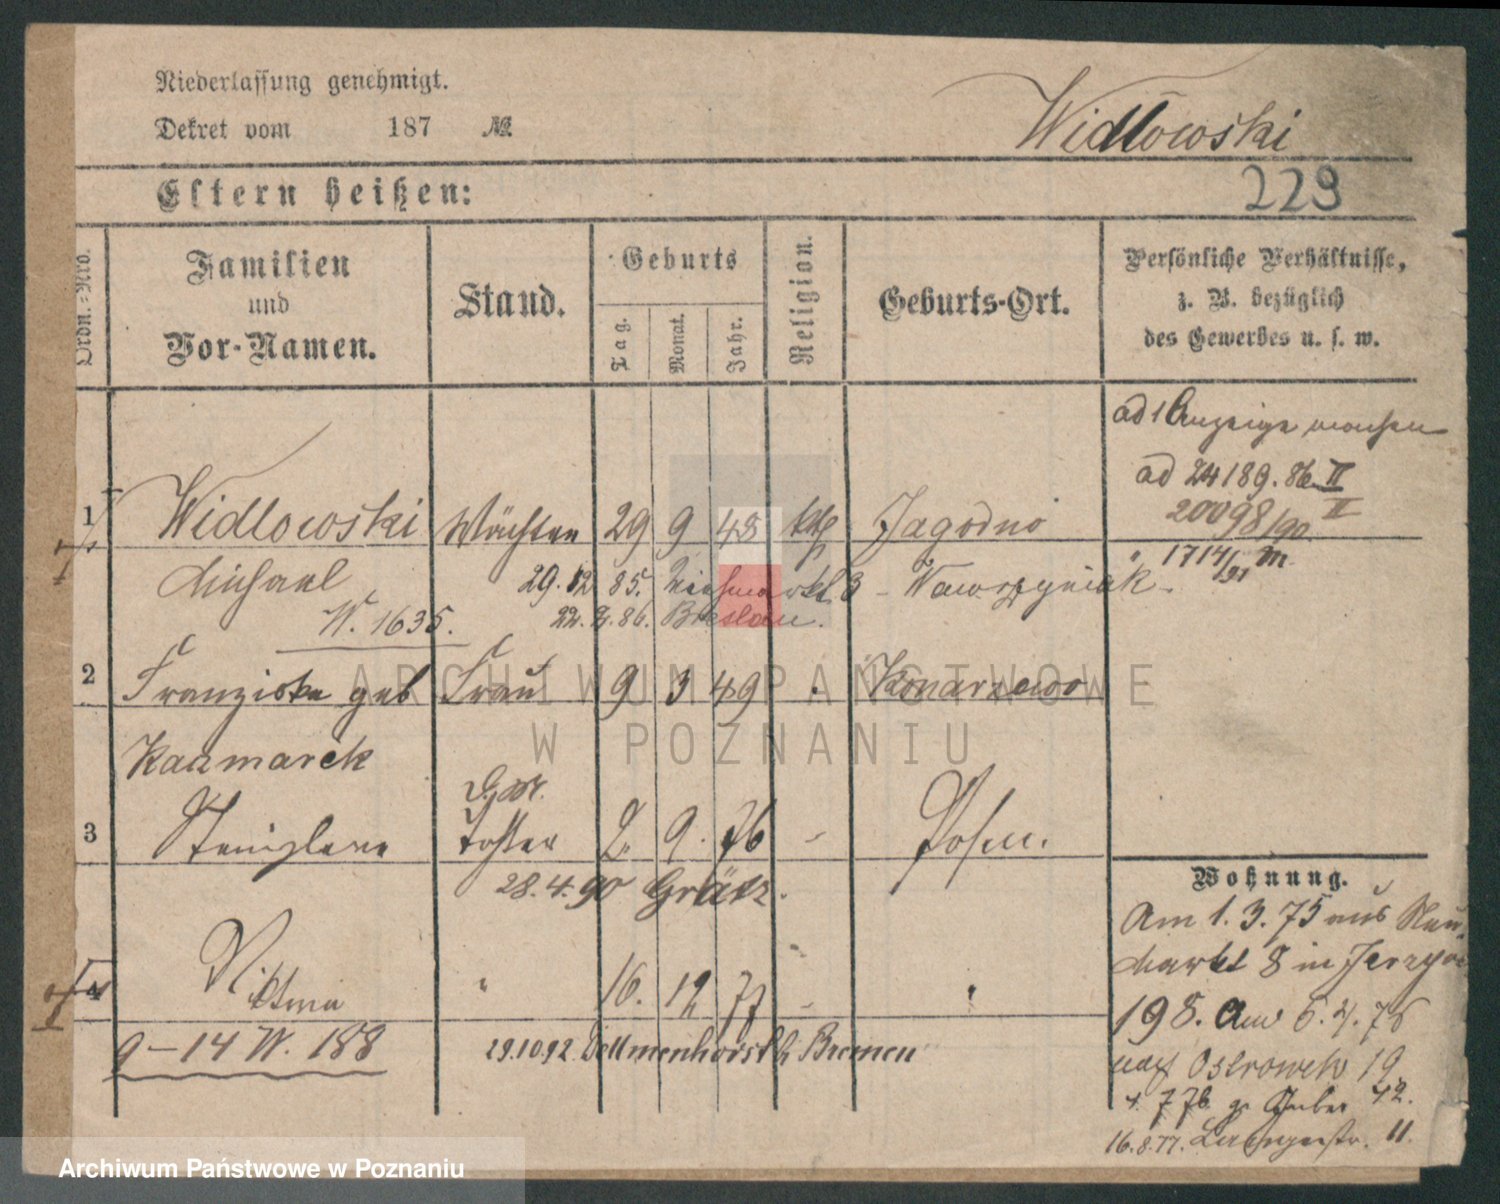 Niederlassung genehmigt.
Dekret vom 187 №
Widlowski
Eltern heißen:
229
Ordn.=Nro.
Familien
und
Vor-Namen.
Stand.
Geburts
Tag.
Monat.
Jahr.
Religion.
Geburts-Ort.
Persönliche Verhältnisse,
z. B. bezüglich
des Gewerbes u. s. w.
ad 1 Anzeige
ad 24189. 86 II
20098/90 II
" 1714/91 M.
1 Widlowski Wächter 29 9 48 kth Jagodno
Michael 29. 12 85. Viehmarkt 3 - Wawrzyniak -
W. 1635. 22. 2. 86. Breslau.
2 Franziska geb Frau 9 3 49 Konarzewo
Kaczmarek
3 Tochter 2. 9. 76 - Posen.
28. 4. 90 Grätz.
4 " 16. 12 77 -
9-14 W. 188 29.10.92. Dellmenhorst b Bremen
Wohnung.
Am 1. 3. 75 aus Neu-
Markt 8 in
198. Am 6. 4. 76
nach Ostrowek 19
42.
16.8.77. 11.
ARCHIWUM PAŃSTWOWE
W POZNANIU
Archiwum Państwowe w Poznaniu